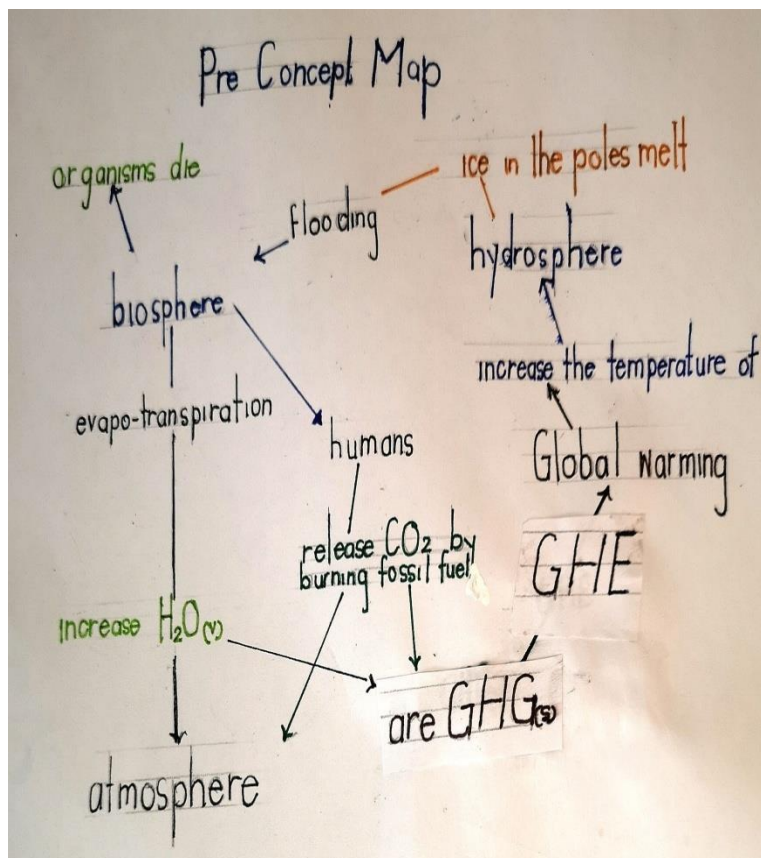 Pre Concept Map
organisms die
ice in the poles melt
flooding
hydrosphere
biosphere
increase the temperature of
evapo-transpiration
humans
Global warming
release CO₂ by
burning fossil fuel
GHE
increase H₂O(v)
are GHG(s)
atmosphere